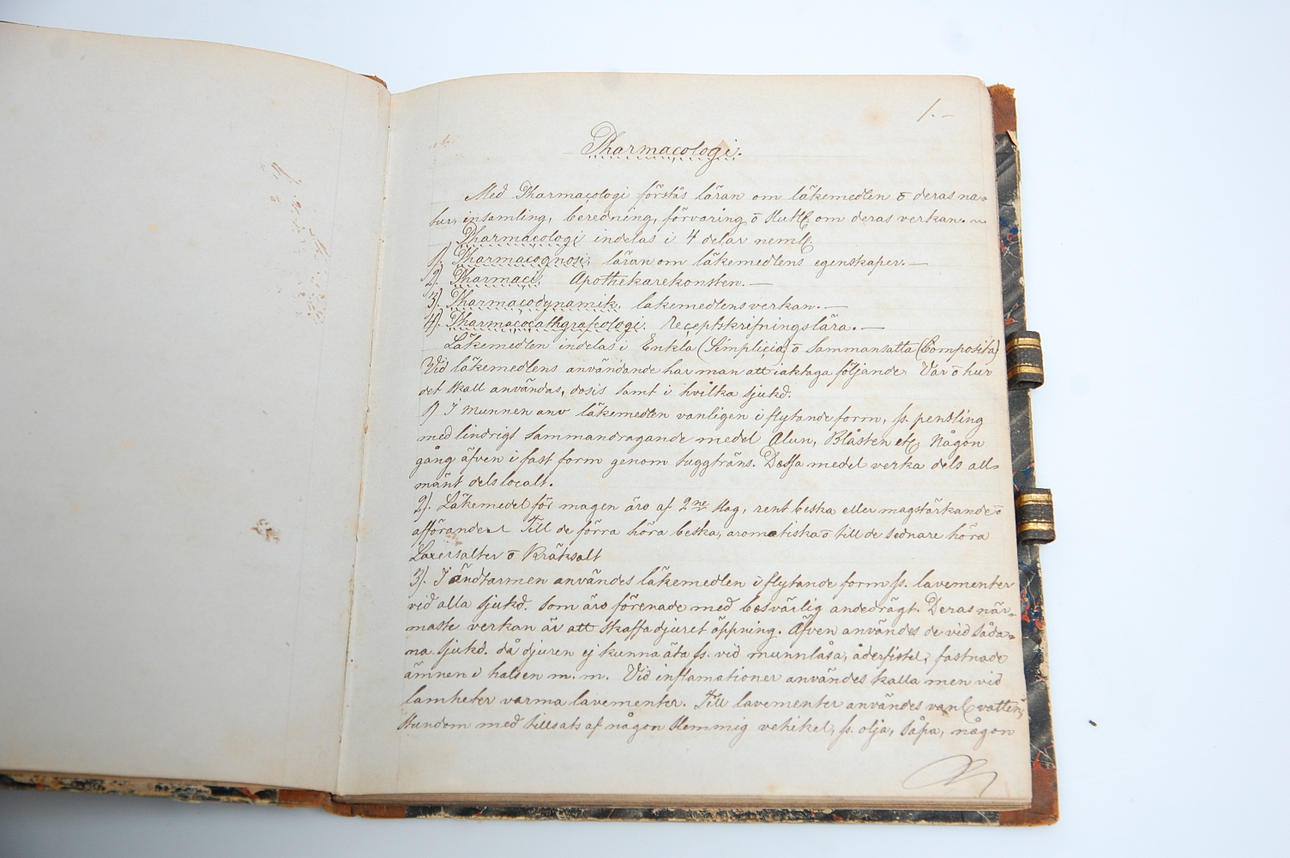 1.-
Pharmacologi.
Med Pharmacologi förstås läran om läkemedlen o deras na-
tur, insamling, beredning, förvaring o om deras verkan.~
Pharmacologi indelas i 4 delar neml.
1) Pharmacognosi, läran om läkemedlens egenskaper.—
2) Pharmaci. Apothekarekonsten.—
3) Pharmacodynamik, läkemedlens verkan.—
4) Receptskrifningslära.—
Läkemedlen indelas i Enkla (Simplicia) o Sammansatta (Composita)
Vid läkemedlens användande har man att iakttaga följande Var o hur
det skall användas, dosis samt i hvilka sjukd.
1) I munnen anv läkemedlen vanligen i flytande form, ss. pensling
med lindrigt sammandragande medel Alun, Blåsten etc. Någon
gång äfven i fast form genom tuggträns. Dessa medel verka dels all-
mänt dels localt.
2). Läkemedel för magen äro af 2ne slag, rent beska eller magstärkande o
afförande. Till de förra höra beska, aromatiska o till de sednare höra
Laxersalter o Kräksalt
3). I ändtarmen användes läkemedlen i flytande form ss. lavementer
vid alla sjukd. som äro förenade med besvärlig andedrägt. Deras när-
maste verkan är att skaffa djuret öppning. Äfven användes de vid såda-
na sjukd. då djuren ej kunna äta ss. vid munnlåsa, åderfistel, fastnade
ämnen i halsen m. m. Vid inflamationer användes kalla men vid
lamheter varma lavementer. Till lavementer användes vanl vatten,
stundom med tillsats af någon slemmig vehikel, ss. olja, såpa, någon